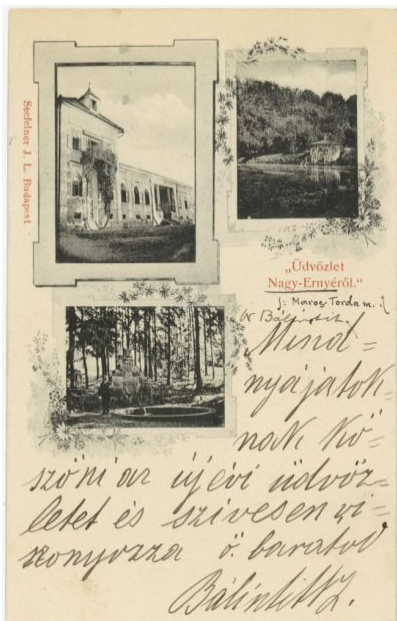 Seefehner J. L. Budapest.
„Üdvözlet
Nagy-Ernyéről.“
Maros-Torda m.
Mind=
nyájatok=
nak kö=
szöni az újévi üdvöz=
letet és szívesen vi=
szonyozza ő. barátod
Bálintitt